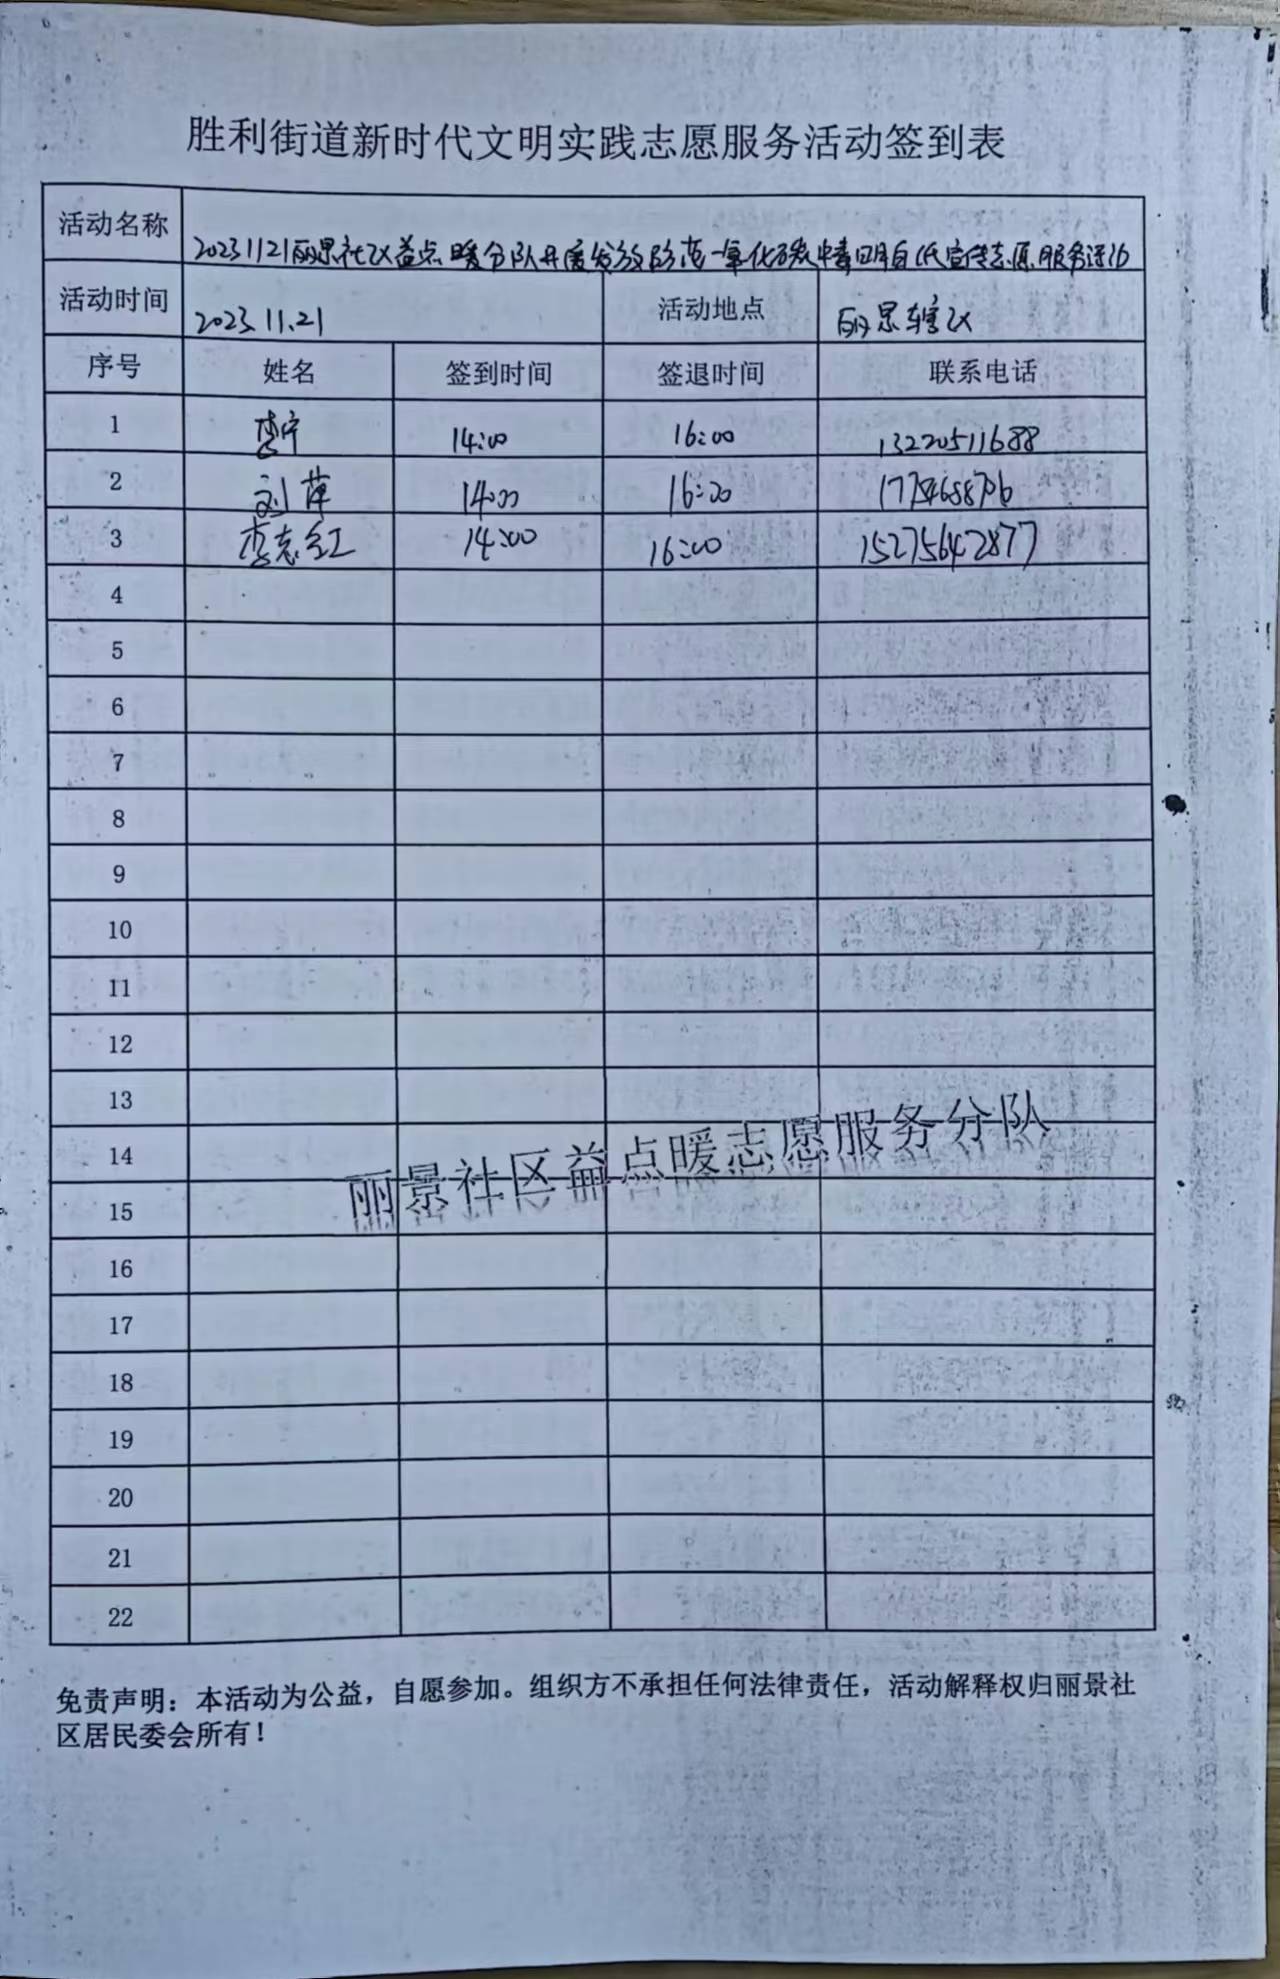 胜利街道新时代文明实践志愿服务活动签到表
活动名称 20231121丽景社区益点暖分队开展发放防范一氧化碳中毒明白纸宣传志愿服务活动
活动时间 2023.11.21 活动地点 丽景辖区
序号 姓名 签到时间 签退时间 联系电话
1 李宁 14:00 16:00 13220511688
2 刘萍 14:00 16:00
3 李志红 14:00 16:00 15275642877
4
5
6
7
8
9
10
11
12
13
14
丽景社区益点暖志愿服务分队
15
16
17
18
19
20
21
22
免责声明：本活动为公益，自愿参加。组织方不承担任何法律责任，活动解释权归丽景社
区居民委会所有！